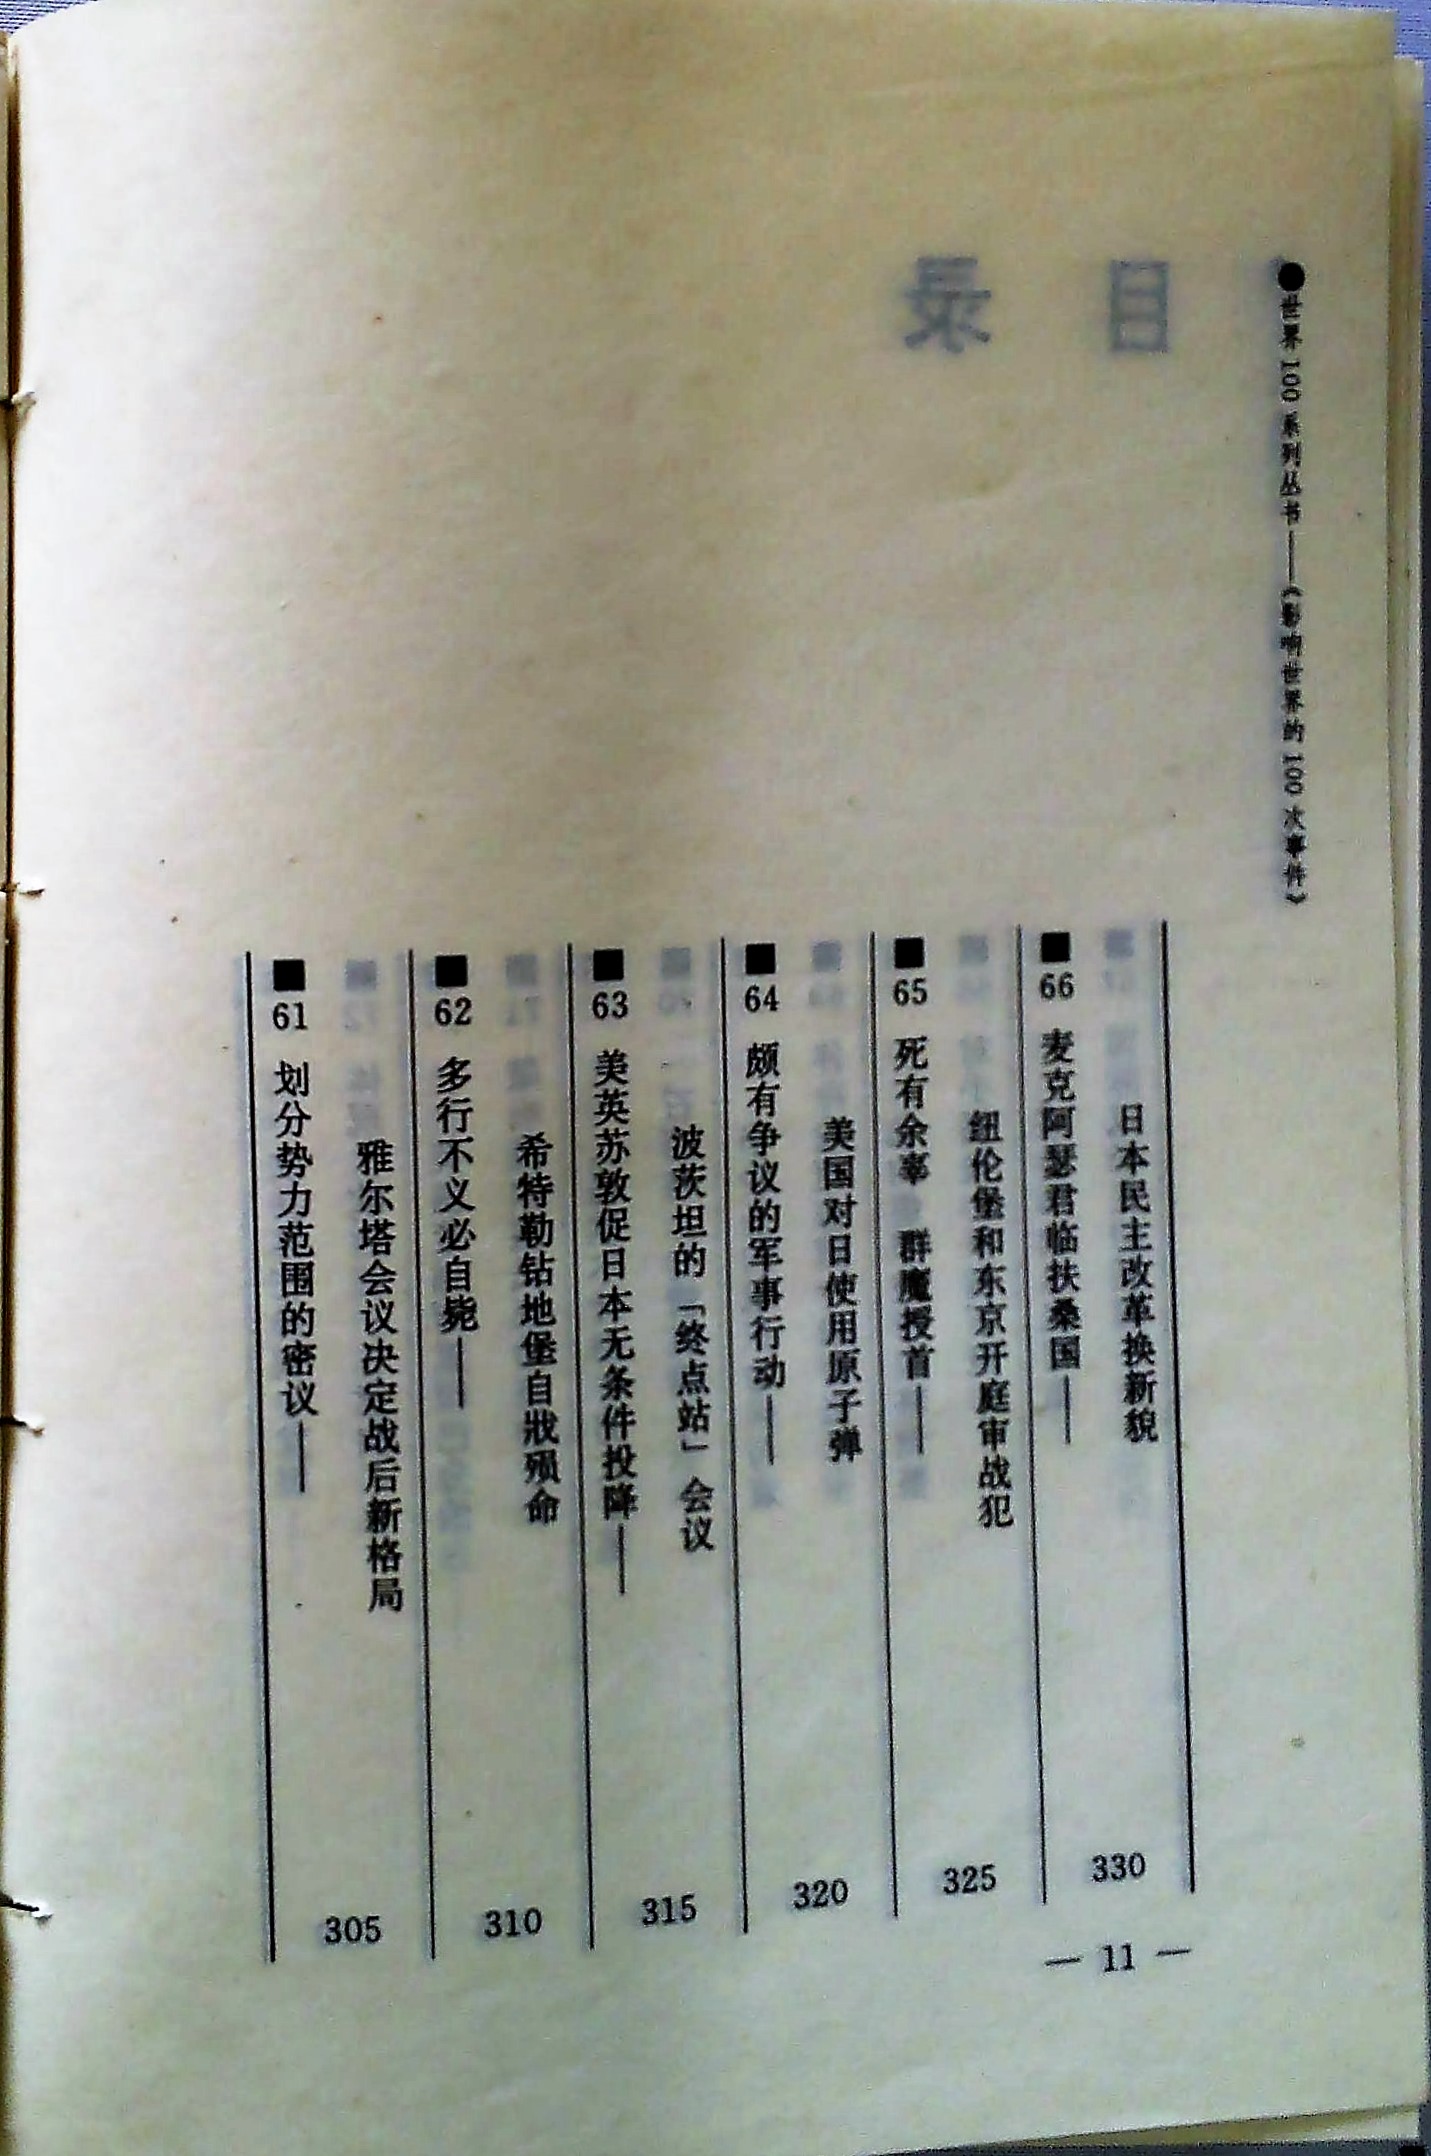 ●世界100系列丛书——《影响世界的100次事件》
■61 划分势力范围的密议——
雅尔塔会议决定战后新格局
305
■62 多行不义必自毙——
希特勒钻地堡自戕殒命
310
■63 美英苏敦促日本无条件投降——
波茨坦的「终点站」会议
315
■64 颇有争议的军事行动——
美国对日使用原子弹
320
■65 死有余辜 群魔授首——
纽伦堡和东京开庭审战犯
325
■66 麦克阿瑟君临扶桑国——
日本民主改革换新貌
330
— 11 —